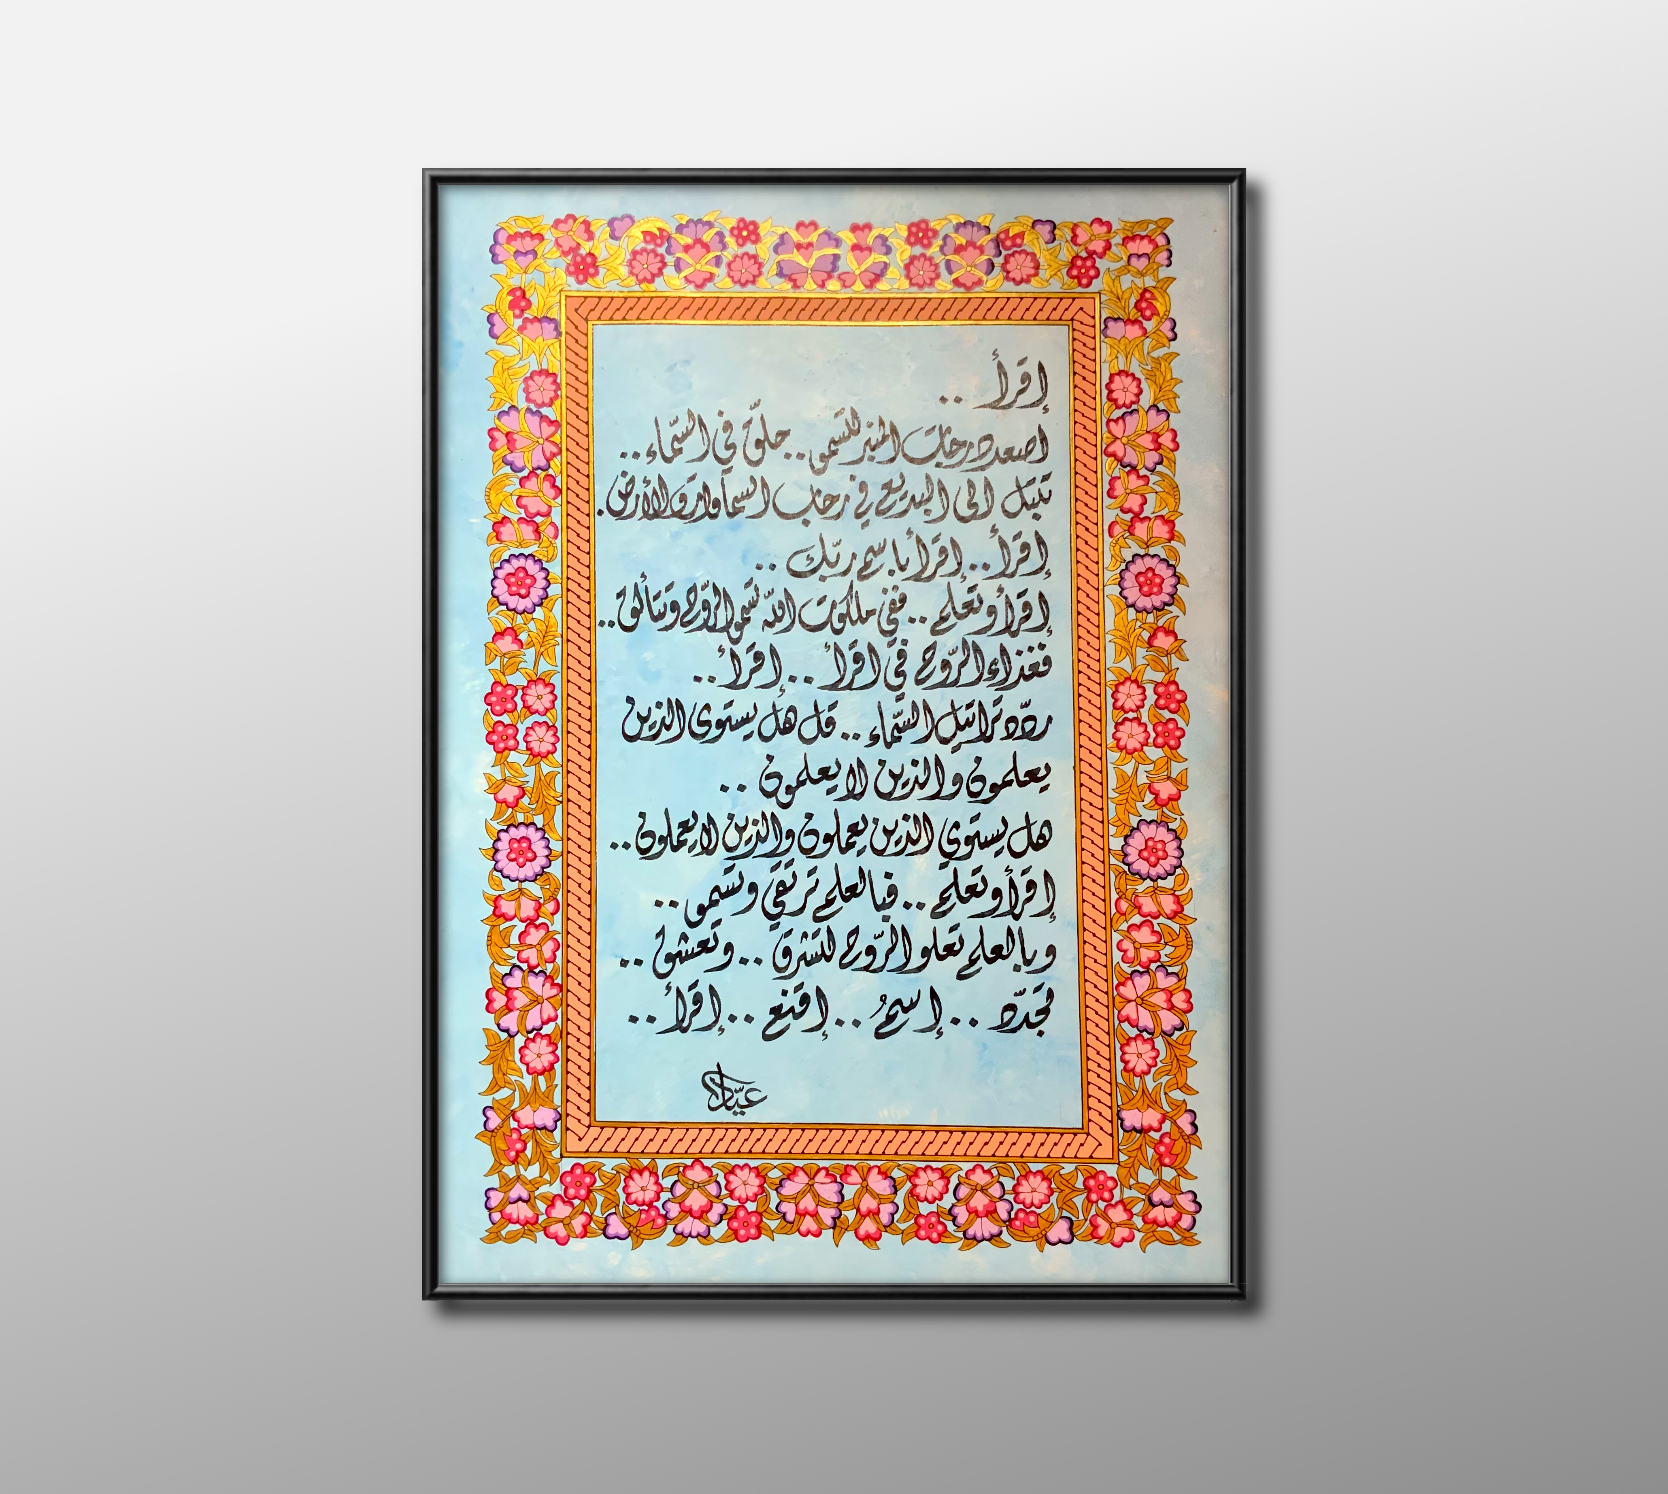 إقرأ ..
اصعد درجات المنبر لتسمو .. حلّق في السّماء ..
تبتل الى البديع في رحاب السماوات والأرض .
إقرأ .. إقرأ باسم ربّك ..
إقرأ وتعلم .. ففي ملكوت الله تسمو الرّوح وتتألق ..
فغذاء الرّوح في اقرأ .. إقرأ ..
ردّد تراتيل السّماء .. قل هل يستوى الذين
يعلمون والذين لا يعلمون ..
هل يستوي الذين يعملون والذين لا يعملون ..
إقرأ وتعلم .. فبالعلم ترتقي وتسمو ..
وبالعلم تعلو الرّوح لتشرق .. وتعشق ..
تجدّد .. إسمُ .. إقنع .. إقرأ ..